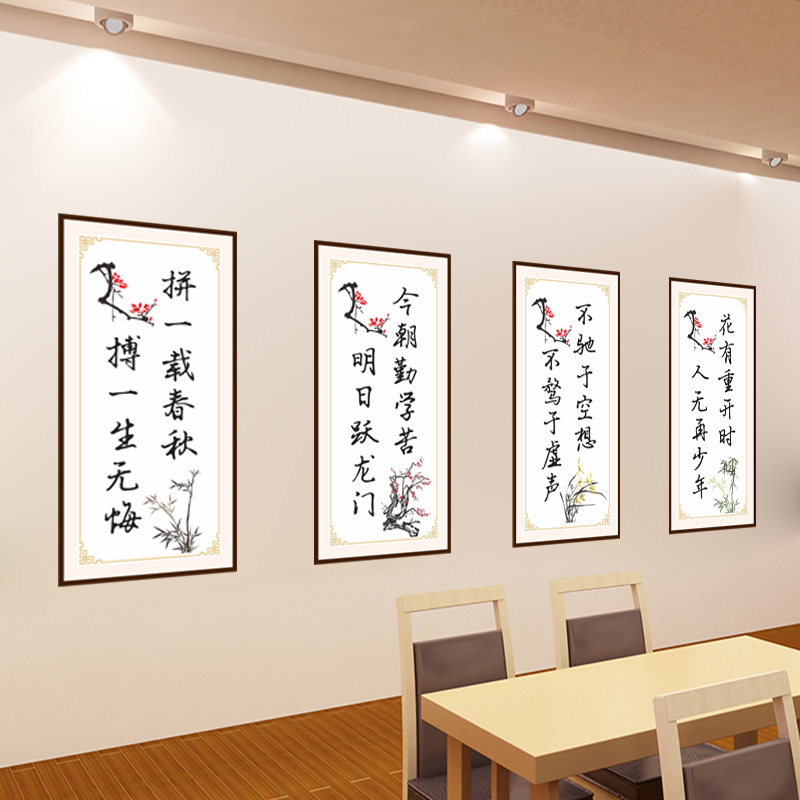 拼一载春秋
搏一生无悔
今朝勤学苦
明日跃龙门
不驰于空想
不骛于虚声
花有重开时
人无再少年